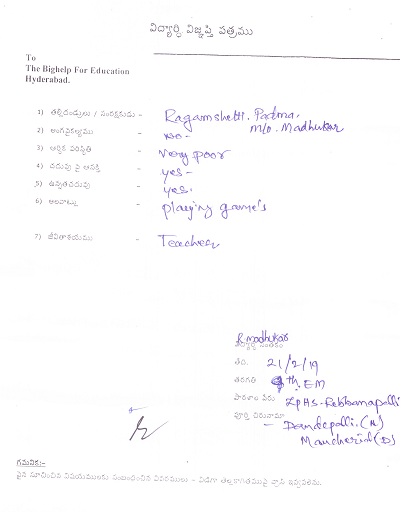 విద్యార్థి విజ్ఞప్తి పత్రము
To
The Bighelp For Education
Hyderabad.
1) తల్లిదండ్రులు / సంరక్షకుడు - Ragamshetti. Padma.
m/o. Madhukar
2) అంగవైకల్యము - No-
3) ఆర్థిక పరిస్థితి - Very poor
4) చదువు పై ఆసక్తి - yes-
5) ఉన్నతచదువు - yes.
6) అలవాట్లు - playing game's
7) జీవితాశయము - Teacher
R madhukar
విద్యార్థి సంతకం
తేది. 21/2/19
తరగతి 9th. EM
పాఠశాల పేరు ZPHS-Rebbanapalli
పూర్తి చిరునామా - Dandepalli.(M)
Mancherial(D)
గమనిక:-
పైన సూచించిన విషయములకు సంబంధించిన వివరములు - విడిగా తెల్లకాగితముపై వ్రాసి ఇవ్వవలెను.